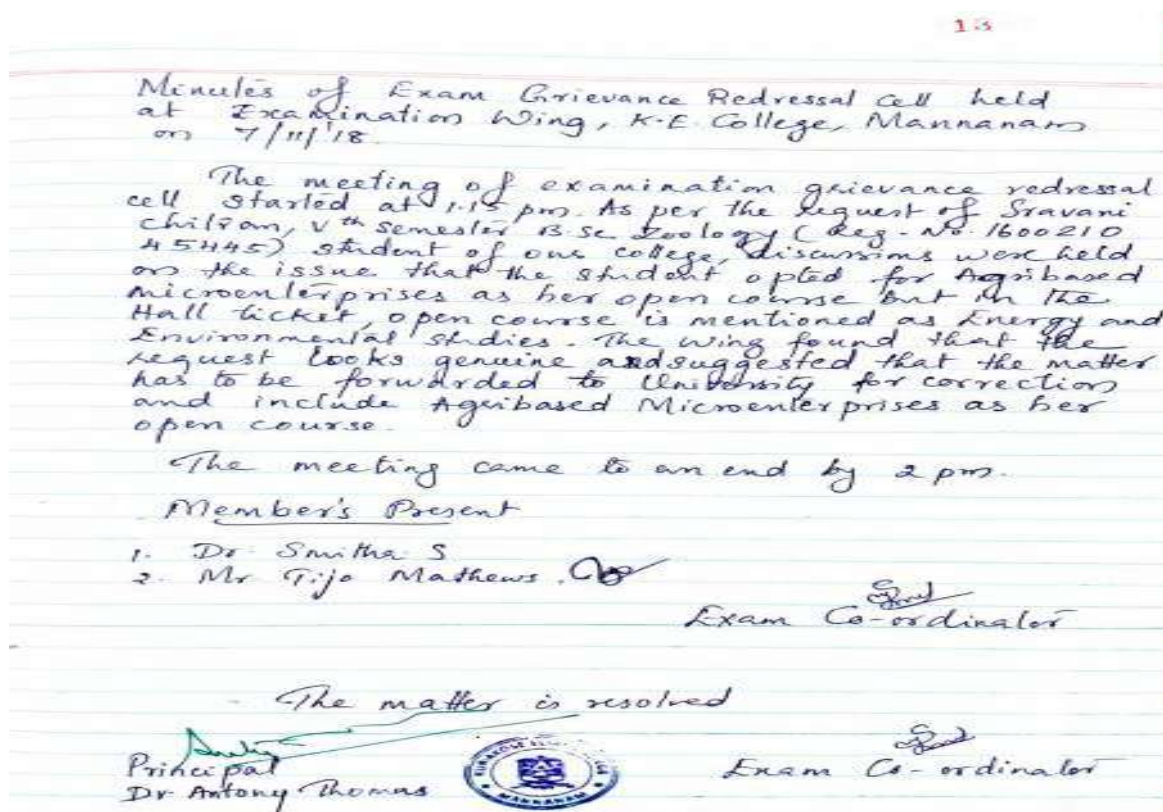 13
Minutes of Exam Grievance Redressal Cell held
at Examination Wing, K.E. College, Mannanam
on 7/11/'18.
The meeting of examination grievance redressal
cell started at 1.15 pm. As per the request of Sravani
Chilian, Vth semester B.Sc Zoology (Reg. No. 1600210
45445) student of our college, discussions were held
on the issue that the student opted for Agribased
Microenterprises as her open course but in the
Hall ticket, open course is mentioned as Energy and
Environmental studies. The wing found that the
request looks genuine and suggested that the matter
has to be forwarded to University for correction
and include Agribased Microenterprises as her
open course.
The meeting came to an end by 2 pm.
Member's Present
1. Dr. Smitha S
2. Mr Tijo Mathews.
Exam Co-ordinator
- The matter is resolved
Principal
Dr Antony Thomas
MANNANAM
Exam Co-ordinator